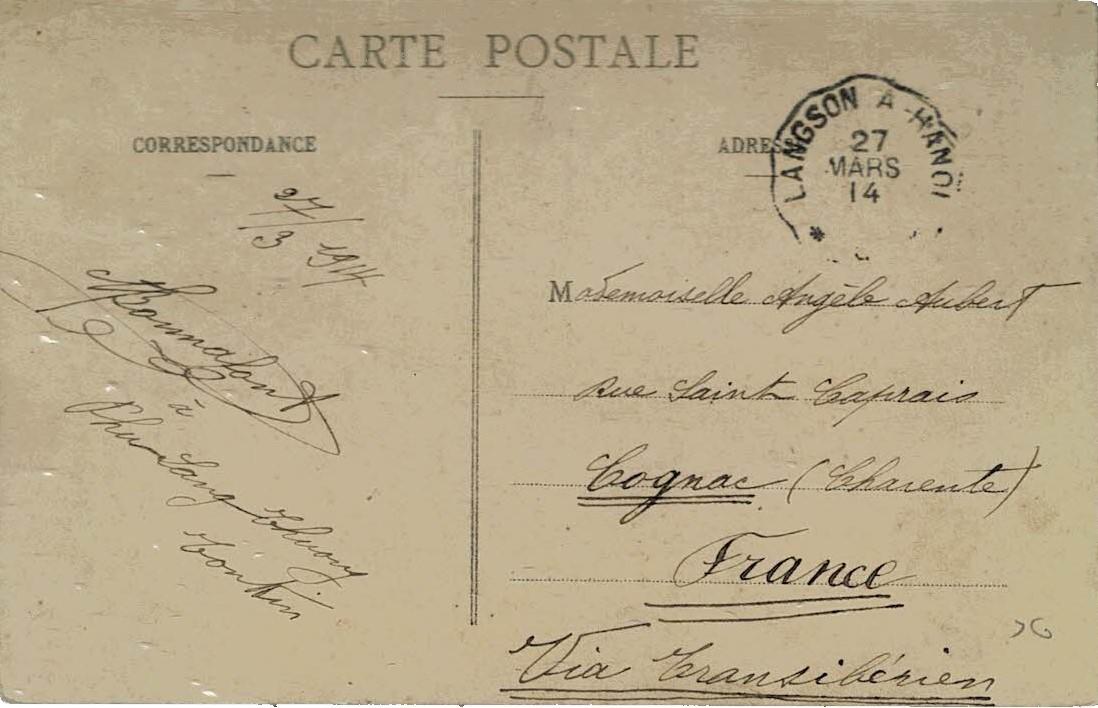 CARTE POSTALE
CORRESPONDANCE
ADRESSE
LANGSON A HANOI
27
MARS
14
27/3 1914
à
Phu Lang Thuong
Tonkin
Mademoiselle Angèle Aubert
Rue Saint Caprais
Cognac (Charente)
France
Via Transibérien